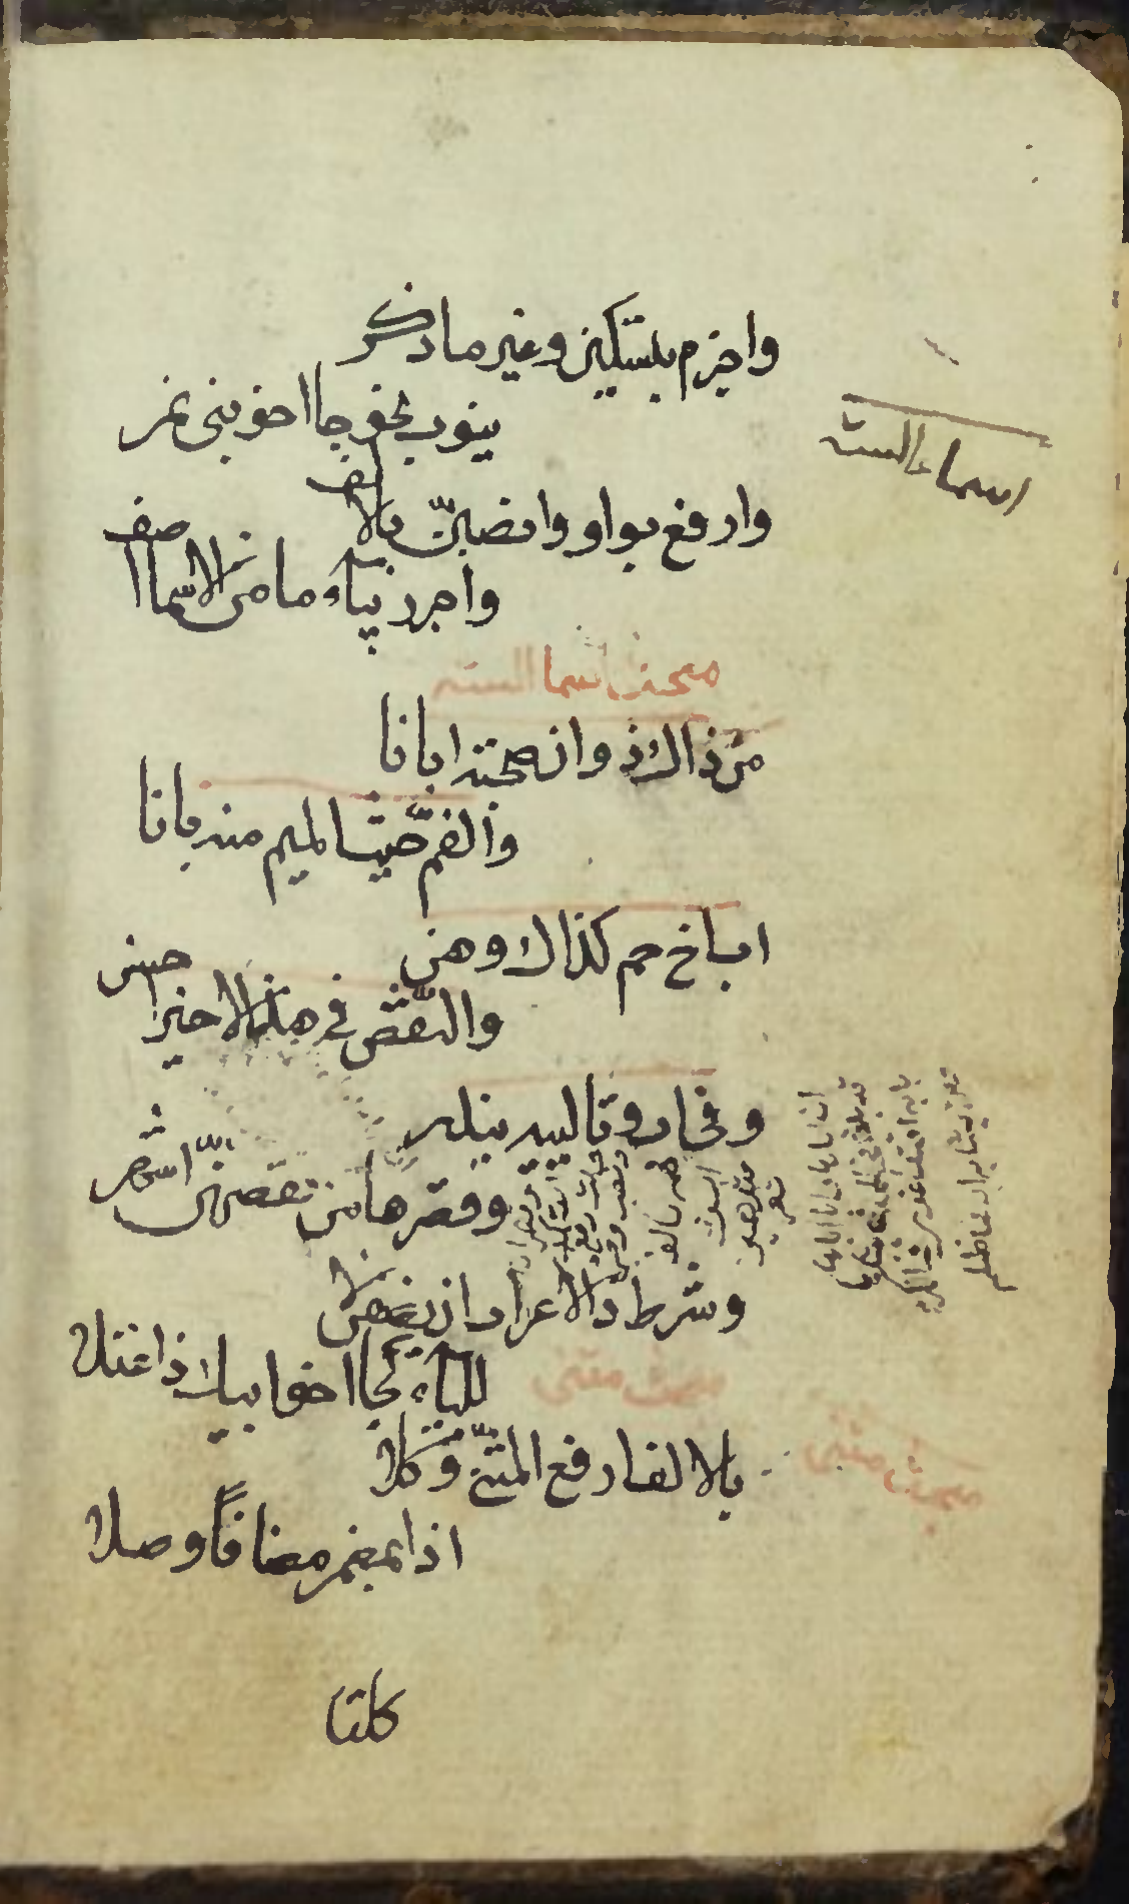 واجزم بتسكين وغير ما ذكر
ينوب نحو جا اخو بنى نمر
اسماء الستة
وارفع بواو وانصبنّ بالالف
واجرر بياء ما من الاسما اصف
مبحث اسما الستة
من ذاك ذو ان صحبة ابانا
والفم حيث الميم منه بانا
اب اخ حم كذاك وهن
والنقص في هذا الاخير احسن
وفي اب وتالييه يندر
وقصرها من نقصهن اشهر
وشرط ذا الاعراب ان يضفن لا
لليا كجا اخو ابيك ذا اعتلا
مبحث مثنى
مبحث مثنى
بالالف ارفع المثنّى وكلا
اذا بمضمر مضافاً وصلا
كلتا